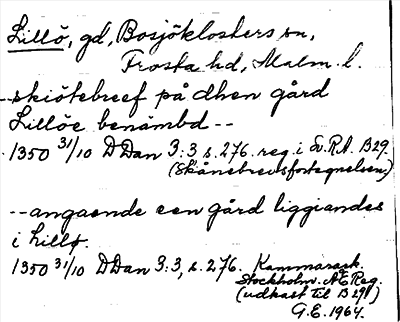 Lillö, gd, Bosjöklosters sn,
Frosta hd, Malm. l.
--skiötebreef på dhen gård
Lillöe benämbd --
1350 31/10 D Dan 3:3 s. 276. reg. i Sv.R.A. B 29.
(Skånebrevsfortegnelsen.)
--angaende een gård liggiandes
i Lillø.
1350 31/10 D Dan 3:3, s. 276. Kammarark.
Stockholm. A E Reg.
(udkast til B 29!)
G.E. 1964.